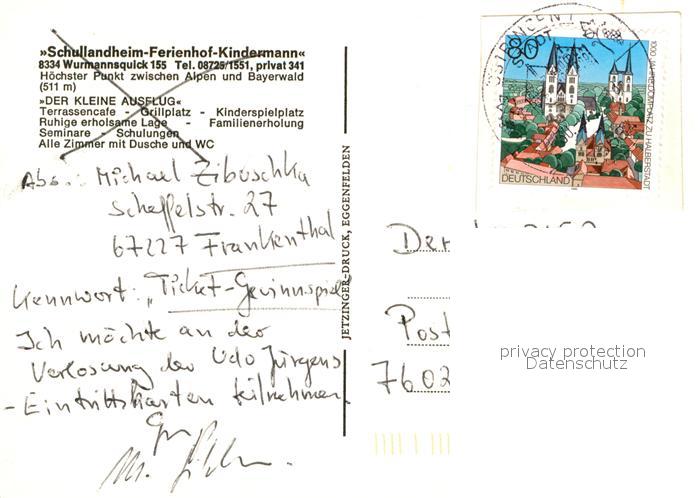 »Schullandheim-Ferienhof-Kindermann«
8334 Wurmannsquick 155 Tel. 08725/1551, privat 341
Höchster Punkt zwischen Alpen und Bayerwald
(511 m)
»DER KLEINE AUSFLUG«
Terrassencafe - Grillplatz - Kinderspielplatz
Ruhige erholsame Lage - Familienerholung
Seminare - Schulungen
Alle Zimmer mit Dusche und WC
Abs.: Michael Zibuschka
Scheffelstr. 27
67227 Frankenthal
Kennwort: „Ticket-Gewinnspiel
Ich möchte an der
Verlosung der Udo Jürgens
-Eintrittskarten teilnehmen.
JETZINGER-DRUCK, EGGENFELDEN
80
1000 JAHRE DOMPLATZ ZU HALBERSTADT
DEUTSCHLAND
Der
Post
7602
privacy protection
Datenschutz